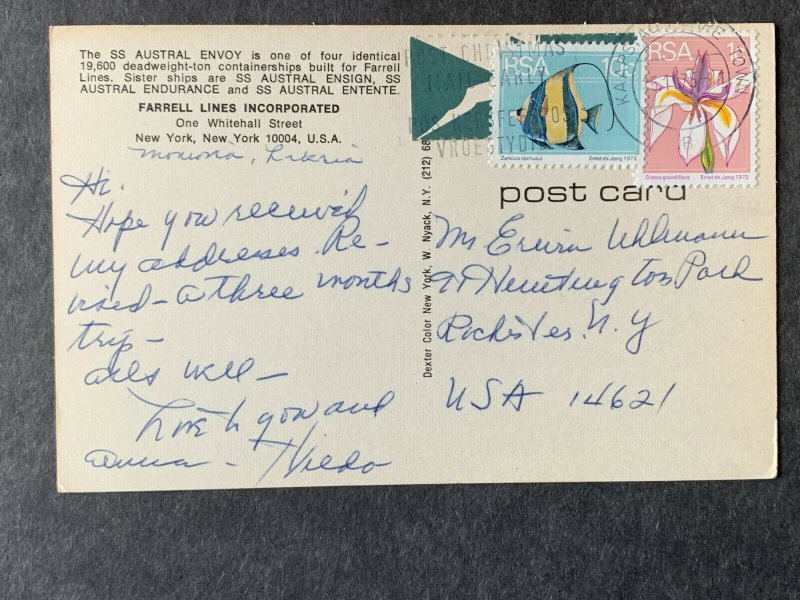 The SS AUSTRAL ENVOY is one of four identical
19,600 deadweight-ton containerships built for Farrell
Lines. Sister ships are SS AUSTRAL ENSIGN, SS
AUSTRAL ENDURANCE and SS AUSTRAL ENTENTE.
FARRELL LINES INCORPORATED
One Whitehall Street
New York, New York 10004, U.S.A.
Liberia
Hi.
Hope you received
my addresses. Re-
vised - a three months
trip -
alls well -
Love to you and
Anna - Hildo
Dexter Color New York, W. Nyack, N.Y. (212) 68
POST CHRISTMAS
MAIL EARLY
VROEGTYDIG
RSA
Zanclus cornutus Ernst de Jong 1973
KAAPSTAD CAPE TOWN
RSA
Dietes grandiflora Ernst de Jong 1973
post card
Mr Erwin Uhlmann
91 Huntington Park
Rochester N.Y
USA 14621